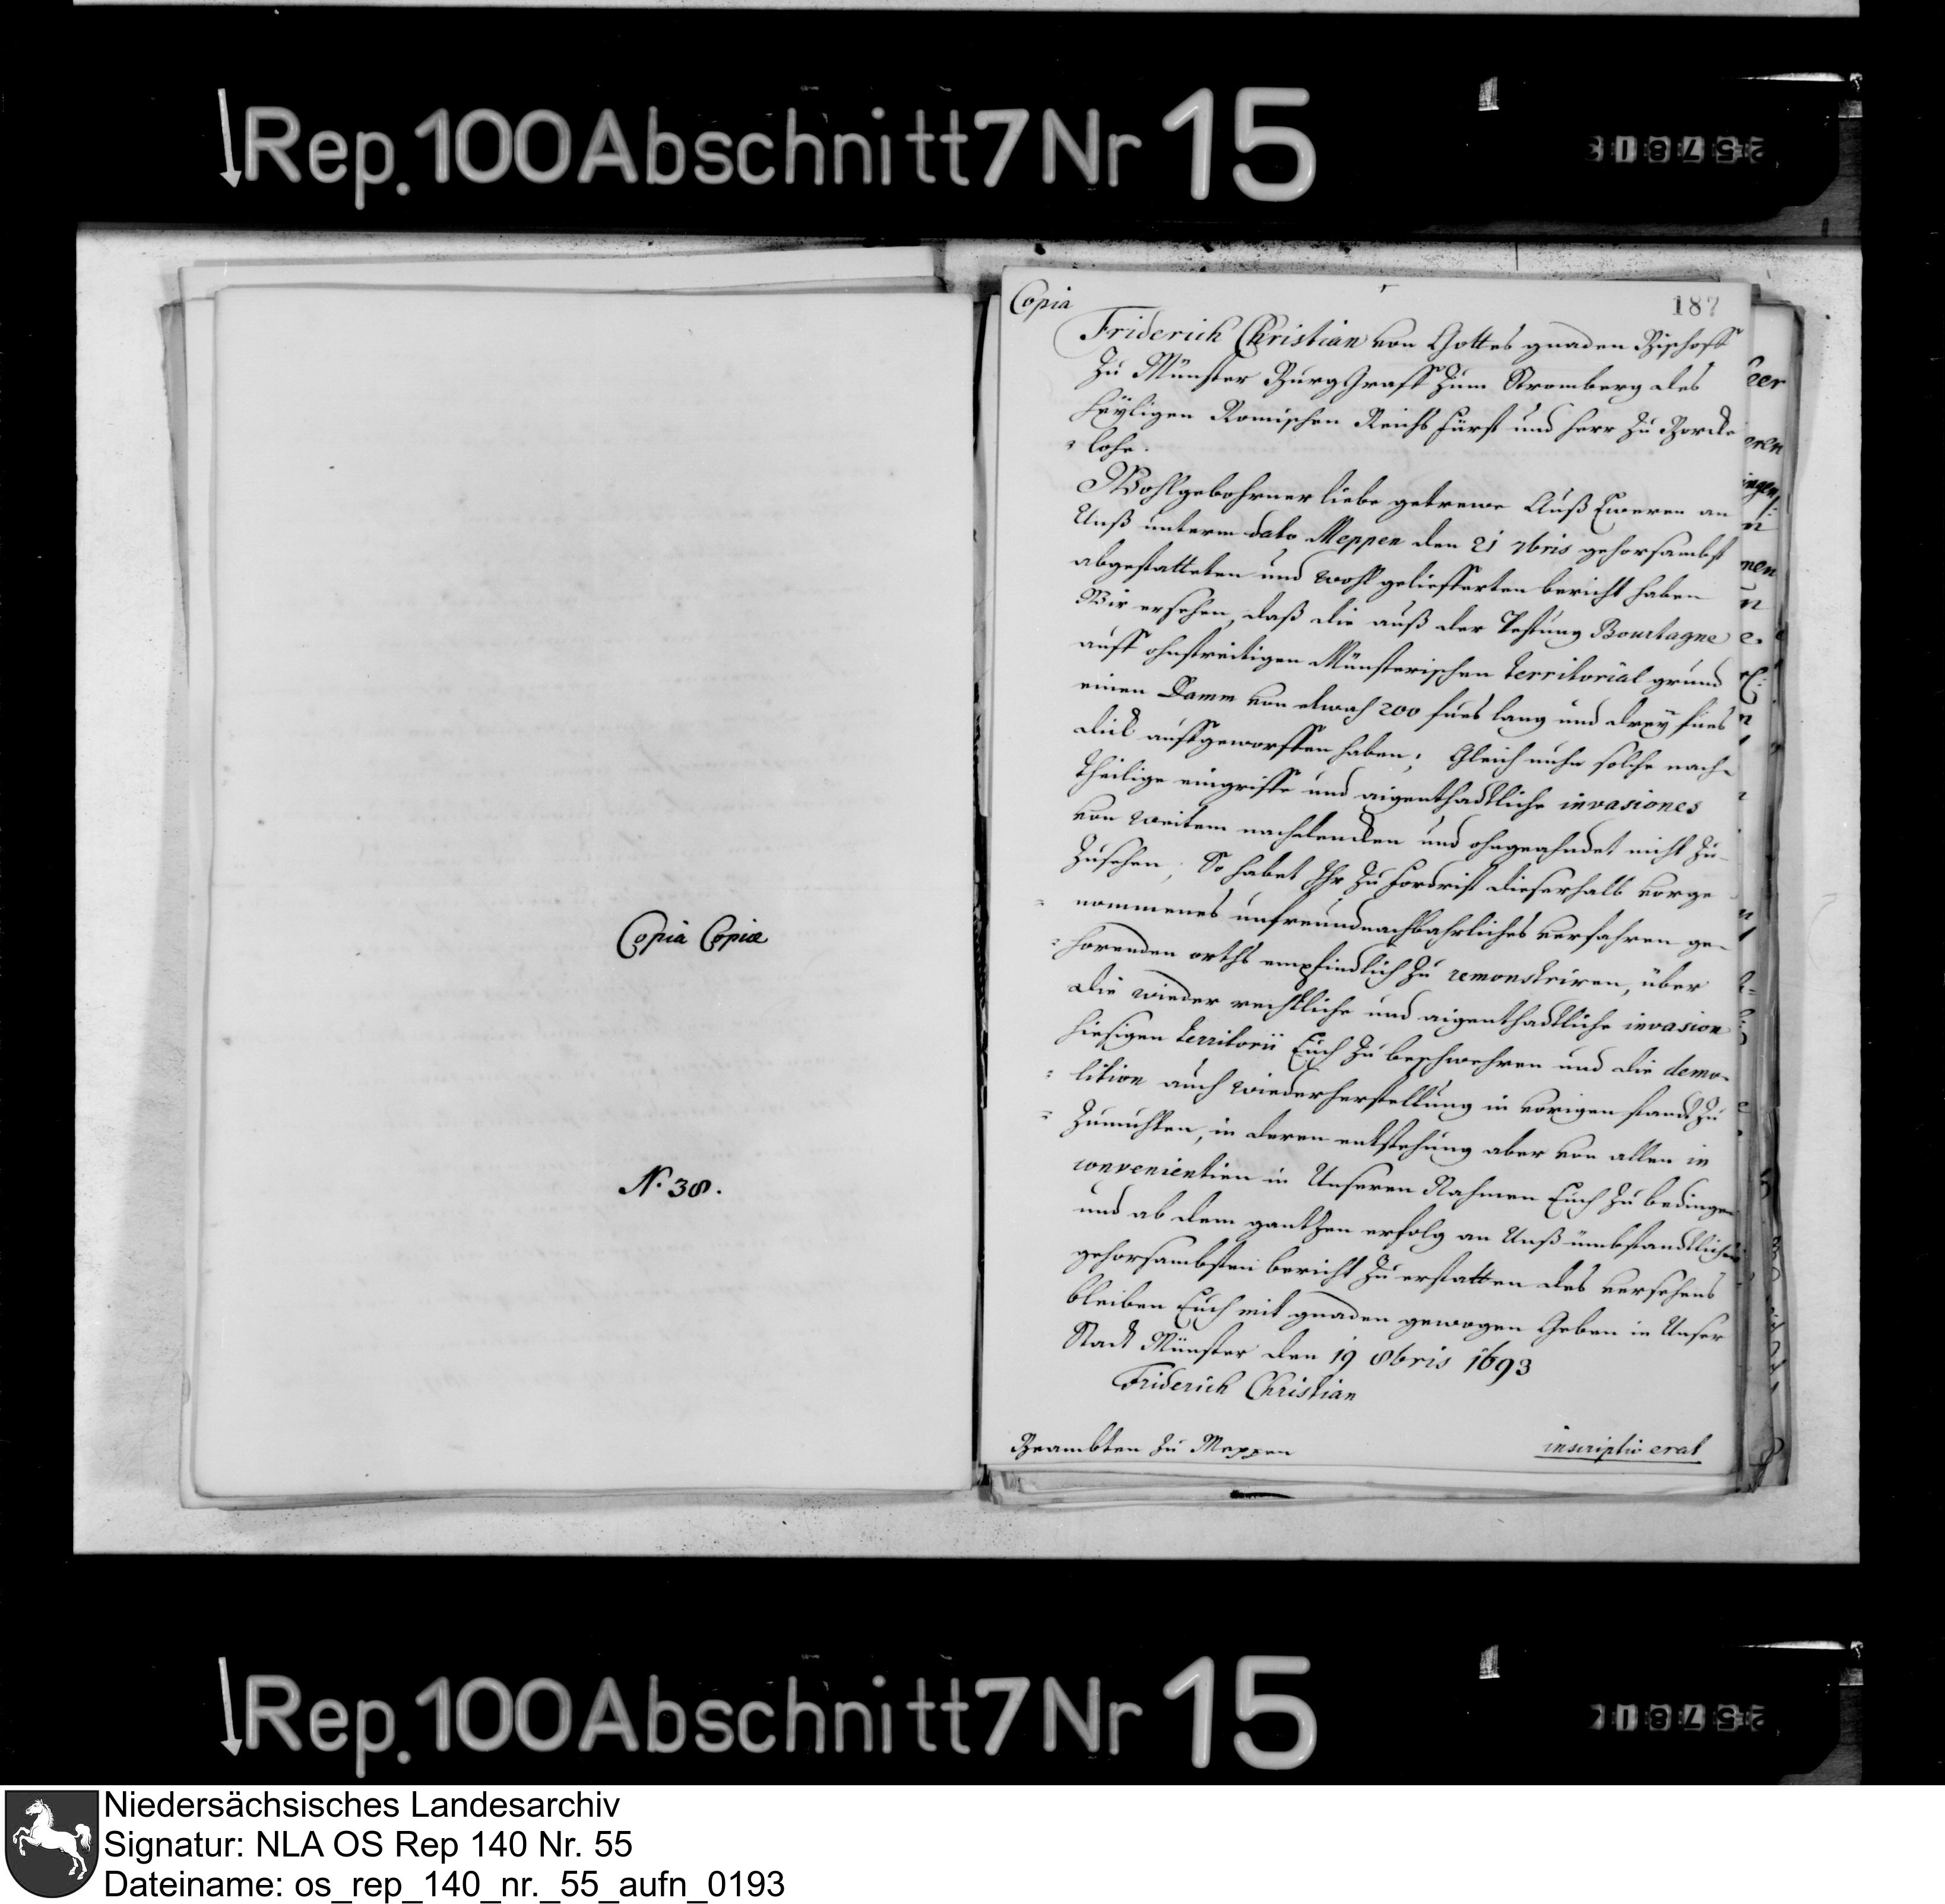 Rep. 100 Abschnitt 7 Nr 15
Copia Copiæ
N. 38.
Copia
187
Friderich Christian von Gottes gnaden Bischoff
Zu Münster BurgGraff Zum Stromberg des
heyligen Romischen Reichs Fürst und herr Zu Borcke
lohe.
Wohlgebohrner liebe getrewe Auß Eweren an
Unß unterm dato Meppen den 21 7bris gehorsambst
abgestatteten und wohl gelieffserten bericht haben
Wir ersehen, daß die auß der Vestung Bourtagne
auff ohnstreitigen Münsterischen territorial grund
einen Damm von etwah 200 fues lang und drey fues
dick auffgeworffen haben; Gleich nuhn solche nach-
theilige eingriffe und aigenthadtliche invasiones
von weitem nachdencken und ohngeahndet nicht zu-
Zusehen, So habet Ihr Zu fordrist dieserhalb vorge
nommenes unfreundnachbahrliches verfahren ge-
horenden orths empfindlich Zu remonstriren, über
die wieder rechtliche und aigenthadtliche invasion
hiesigen territorii Euch Zu beschwehren und die demo-
lition auch wiederherstellung in vorigen standt Zu
Zumuhten, in deren entstehung aber von allen in
convenientien in Unseren Nahmen Euch Zu bedingen
und ab dem gantzen erfolg an Unß umbstandtlichen
gehorsambsten bericht Zu erstatten des versehens
bleiben Euch mit gnaden gewogen Geben in Unser
Stadt Münster den 19 8bris 1693
Friderich Christian
Beambten Zu Meppen
inscriptio erat
Rep. 100 Abschnitt 7 Nr 15
Niedersächsisches Landesarchiv
Signatur: NLA OS Rep 140 Nr. 55
Dateiname: os_rep_140_nr._55_aufn_0193